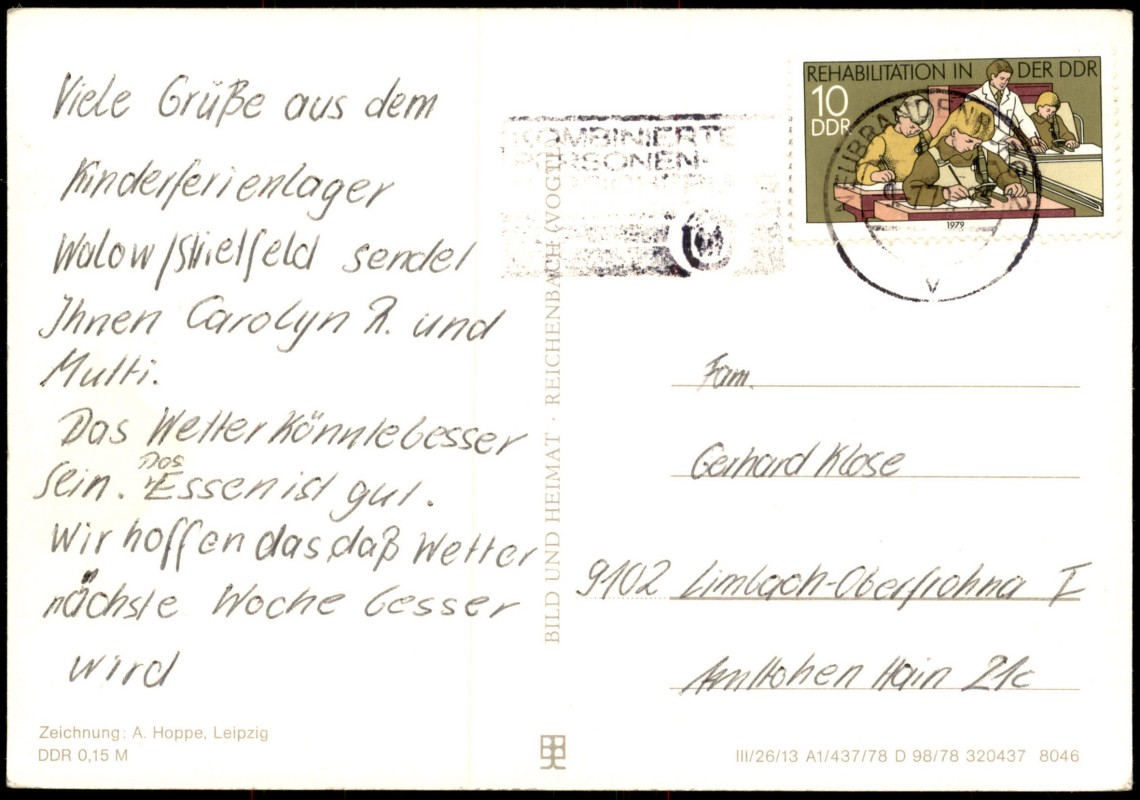 Viele Grüße aus dem
Kinderferienlager
Walow/Strietfeld sendet
Ihnen Carolyn R. und
Mutti.
Das Wetter könnte besser
sein. Das Essen ist gut.
Wir hoffen das daß Wetter
nächste Woche besser
wird
Zeichnung: A. Hoppe, Leipzig
DDR 0,15 M
BILD UND HEIMAT · REICHENBACH (VOGTL
KOMBINIERTE
PERSONEN-
REHABILITATION IN DER DDR
10
DDR
1979
NEUBRANDENBURG
v
Fam.
Gerhard Klose
9102 Limbach-Oberfrohna I
Am Hohen Hain 21c
III/26/13 A1/437/78 D 98/78 320437 8046